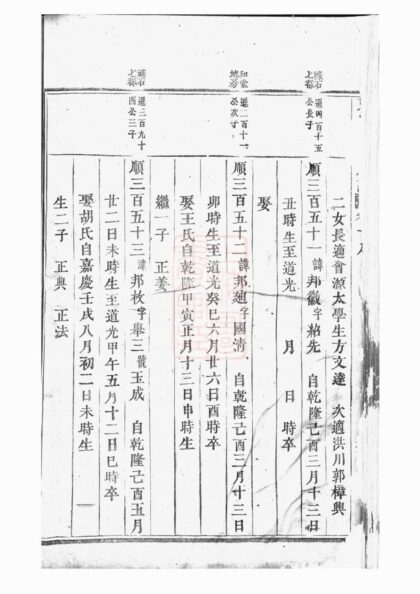 二女長適會源太學生方文達 次適洪川郭樟興
遜四百十五
公長子
順三百五十一 諱邦徽字紹先 自乾隆己酉三月十三日
丑時生至道光 月 日 時卒
娶
遜一百十一
公次子
順三百五十二 諱邦廸字國清 自乾隆己酉三月十三日
卯時生至道光癸巳六月廿六日酉時卒
娶王氏自乾隆甲寅正月十三日申時生
繼一子 正美
遜三百九十
四公三子
順三百五十三 諱邦枚字舉三號玉成 自乾隆己酉五月
廿二日未時生至道光甲午五月十二日巳時卒
娶胡氏自嘉慶壬戌八月初二日未時生
生二子 正典 正法